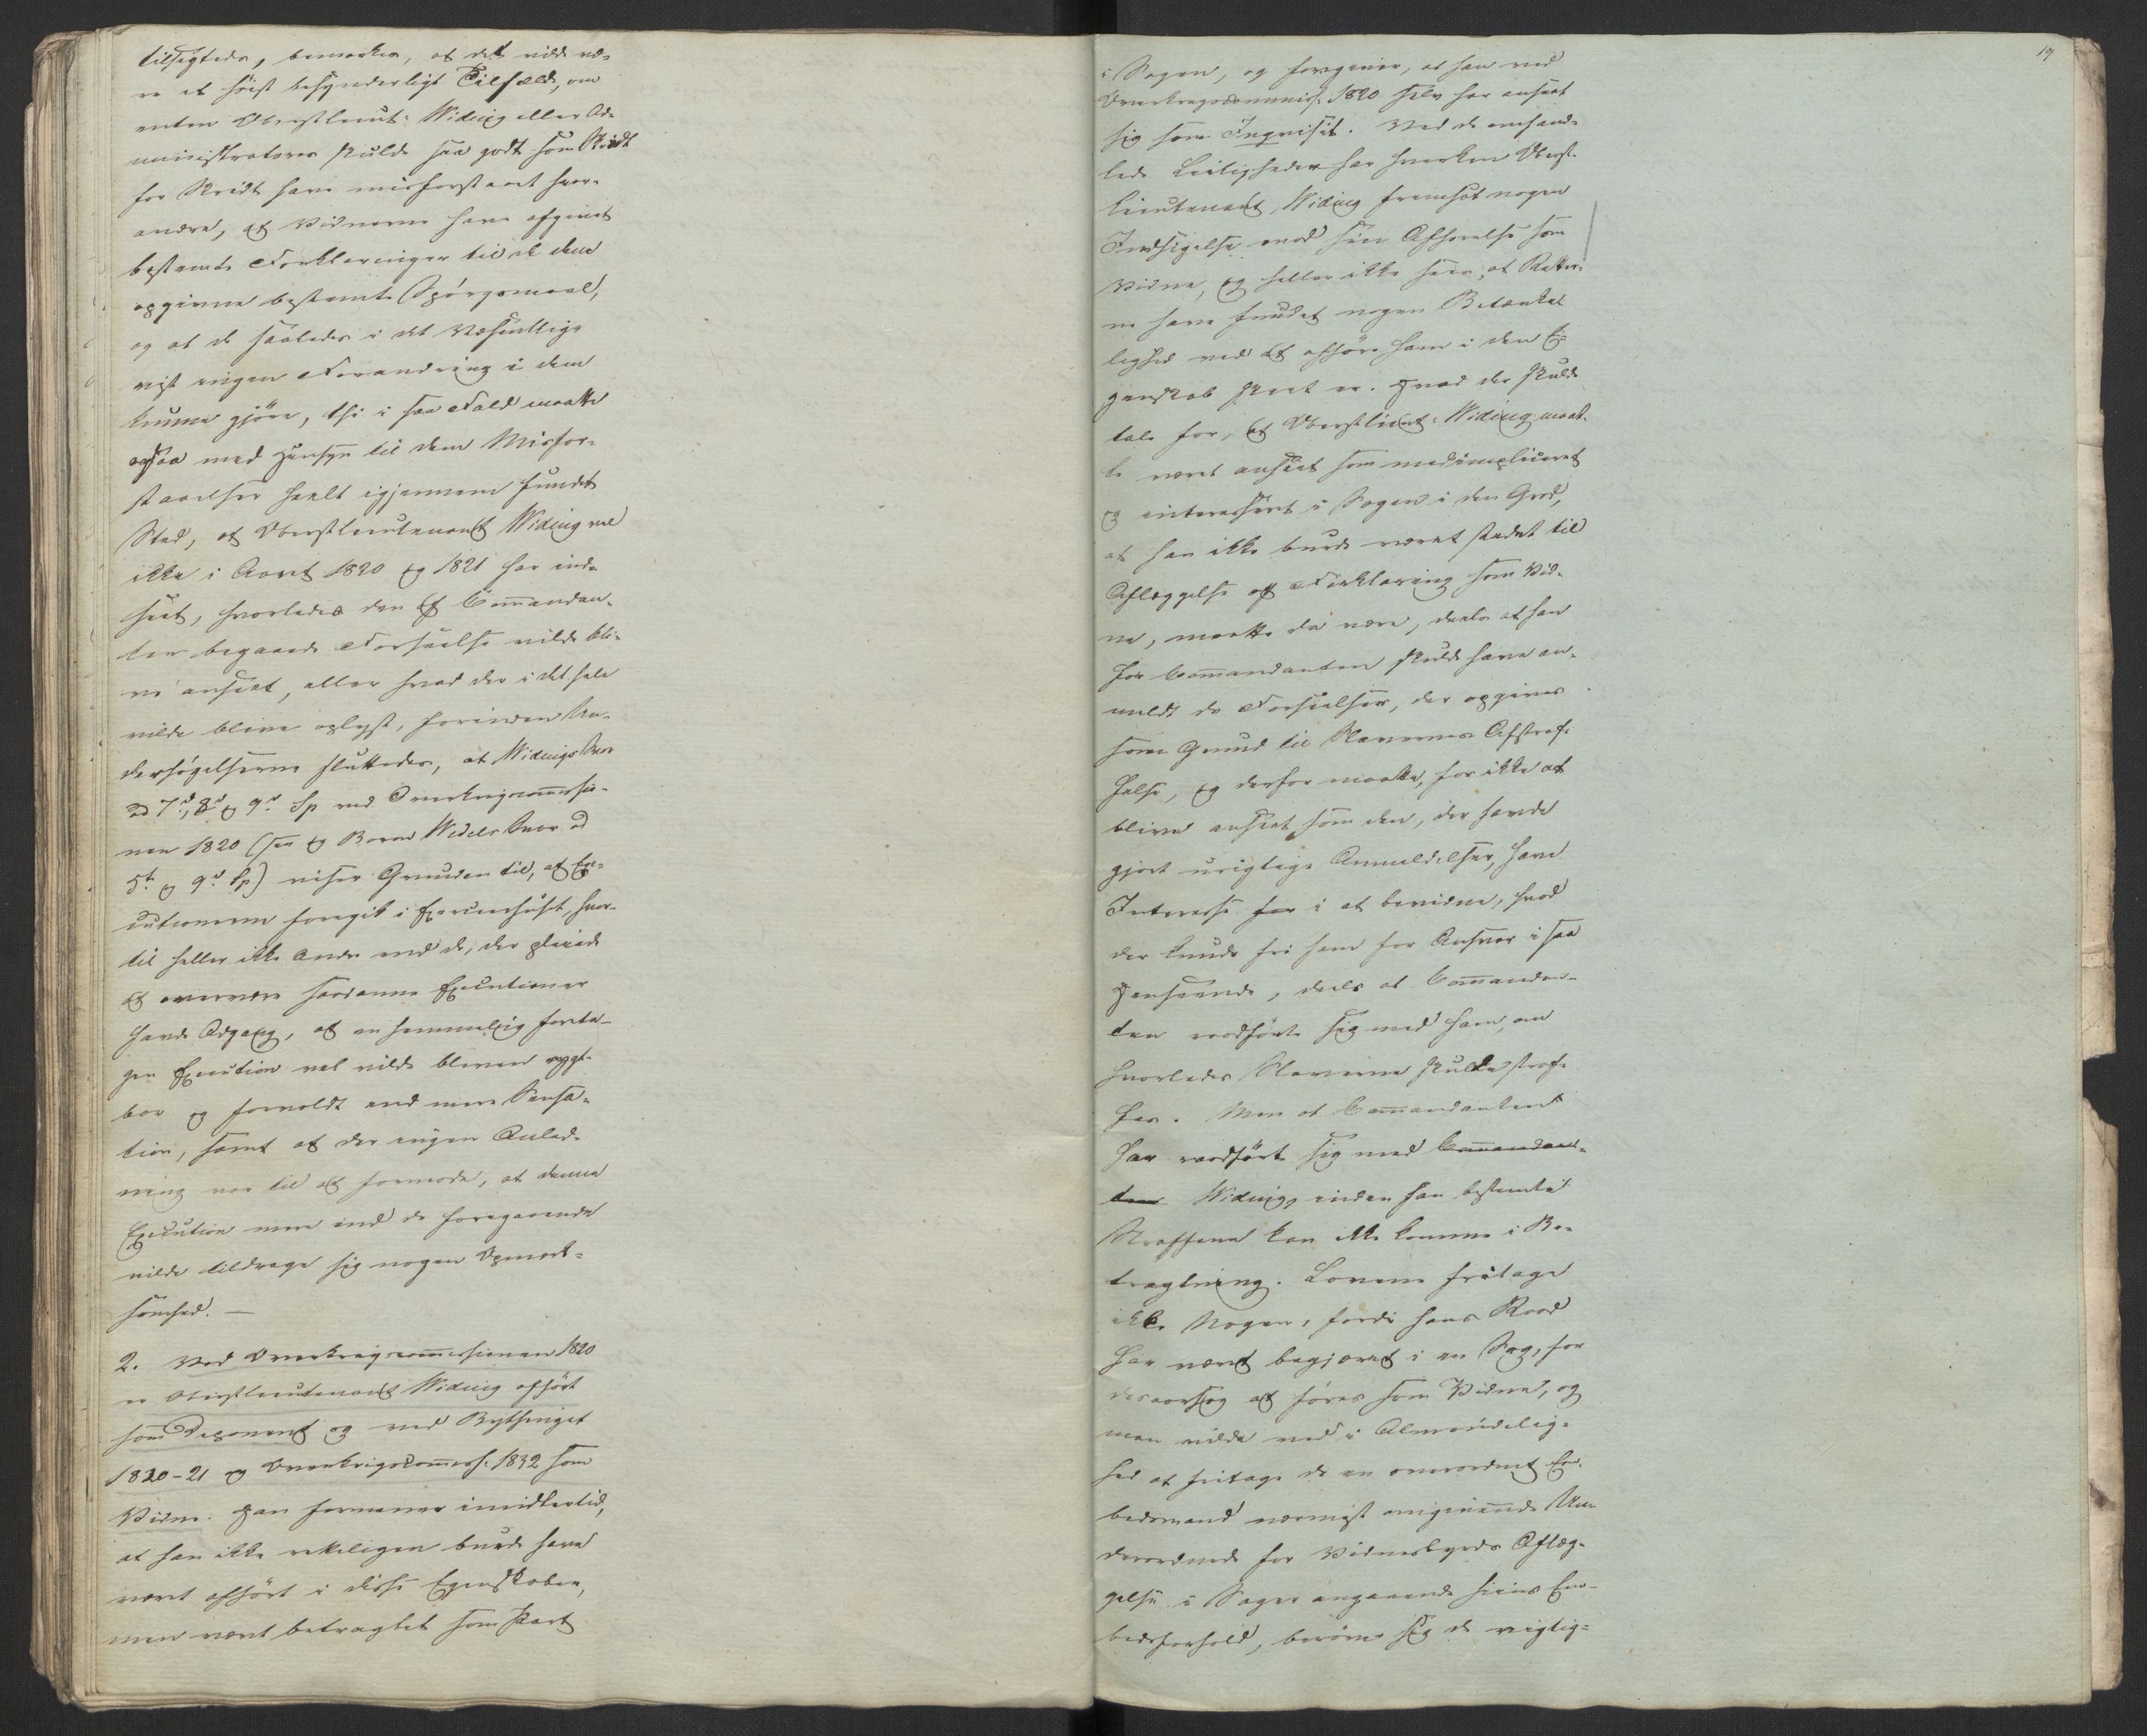 tilsigtede, bemærkes, at det vilde væ-
re et høist besynderligt Tilfælde, om
enten Oberstlieut: Wideing eller Ad-
ministratorer skulde saa godt som Skridt
for Skridt have misforstaaet hver-
andre, at Vidnerne have afgivet
bestemte Forklaringer til de dem
opgivne bestemte Spörgsmaal,
og at de saaledes i det Væsentlige
vist ingen Forandring i dem
kunne gjöre, thi i saa Fald maatte
ogsaa med Hensyn til dem Misfor-
staaelser heelt igjennem fundet
Sted, at Oberstlieutenant Wideing vel
ikke i Aaret 1820 og 1821 har ind-
seet, hvorledes den af Commandan-
ten begaaede Forseelse vilde bli-
ve anseet, eller hvad der i det hele
vilde blive oplyst, forinden Un-
dersögelserne sluttedes, at Wideings Svar
ad 7d, 8d og 9d Sp ved Overkrigscommissio-
nen 1820 (see og Baron Wedels Svar ad
5t og 9d Sp) viser Grunden til, at Exe-
cutionerne foregik i Exerceerhuset, hvor-
til heller ikke Andre end de, der pleiede
at overvære saadanne Executioner
havde Adgang, at en hemmelig foreta-
gen Execution vel vilde bleven rygt-
bar og forvoldt end mere Sensa-
tion, samt at der ingen Anled-
ning var til at formode, at denne
Execution mere end de foregaaende
vilde tildrage sig nogen Opmærk-
somhed. —
2. Ved Overkrigscommissionen 1820
er Oberstlieutenant Wideing afhört
som Deponent og ved Bythinget
1820-21 og Overkrigscommiss: 1832 som
Vidne. Han formener imidlertid,
at han ikke retteligen burde have
været afhört i disse Egenskaber,
men været betragtet som Part
19
i Sagen, og foregiver, at han ved
Overkrigscommiss: 1820 selv har anseet
sig som Inqvisit. Ved de omhand-
lede Leiligheder har hverken Oberst-
lieutenant Wideing fremsat nogen
Indsigelse mod sin Afhörelse som
Vidne, og heller ikke sees, at Retter-
ne have fundet nogen Betænke-
lighed ved at afhöre ham i den E-
genskab skeet er. Hvad der skulde
tale for, at Oberstlieut: Wideing maat-
te været anseet som medimpliceret
og interesseret i Sagen i den Grad,
at han ikke burde været stedet til
Aflæggelse af Forklaring som Vid-
ne, maatte da være, deels at han
for Commandanten skulde have an-
meldt de Forseelser, der opgives
som Grund til Slavernes Afstraf-
felse, og derfor maatte, for ikke at
blive anseet som den, der havde
gjort urigtige Anmeldelser, have
Interesse for i at bevidne, hvad
der kunde fri ham for Ansvar i saa
Henseende, deels at Commandan-
ten raadförte sig med ham, om
hvorledes Slaverne skulde straf-
fes. Men at Commandanten
har raadfört sig med Commandan-
ten Wideing, inden han bestemte
Straffene kan ikke komme i Be-
tragtning. Lovene fritage
ikke Nogen, fordi hans Raad
har været begjæret i en Sag, for
desaarsag at föres som Vidne, og
man vilde ved i Almindelig-
hed at fritage de en overordnet Em-
bedsmand nærmest omgivende Un-
derordnede for Vidnesbyrds Aflæg-
gelse i Sager angaaende hiins Em-
bedsforhold, beröve sig de vigtig-